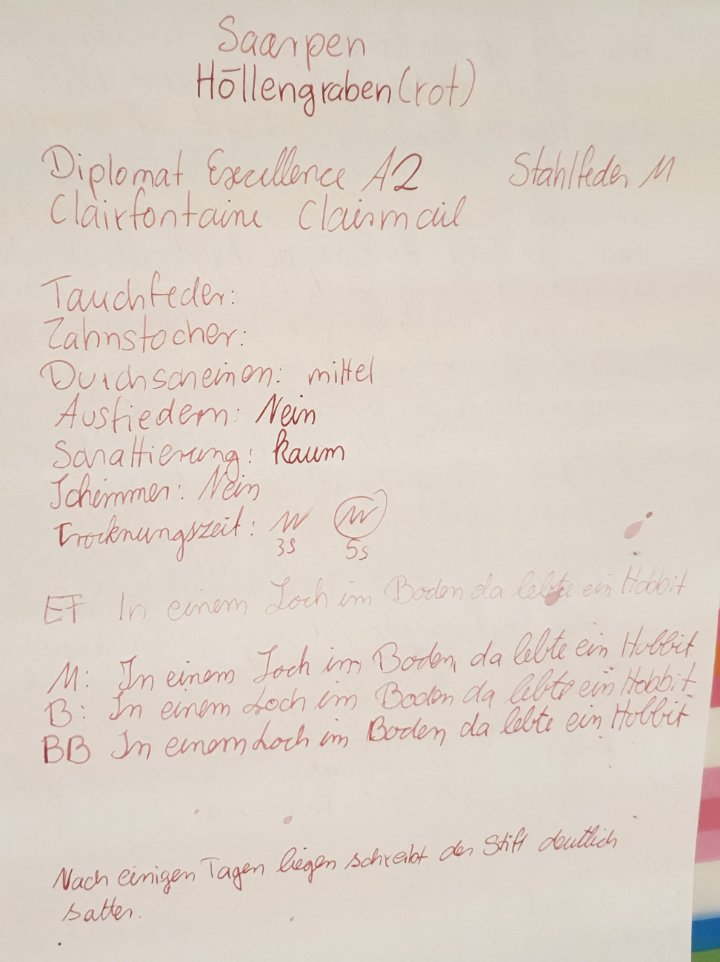 Saarpen
Höllengraben (rot)
Diplomat Excellence A2 Stahlfeder M
Clairfontaine Clairmail
Tauchfeder:
Zahnstocher:
Durchscheinen: mittel
Ausfiedern: Nein
Schattierung: kaum
Schimmer: Nein
Trocknungszeit:
3s 5s
EF In einem Loch im Boden da lebte ein Hobbit
M: In einem Loch im Boden, da lebte ein Hobbit
B: In einem Loch im Boden da lebte ein Hobbit
BB In einem Loch im Boden, da lebte ein Hobbit
Nach einigen Tagen liegen schreibt der Stift deutlich
satter.